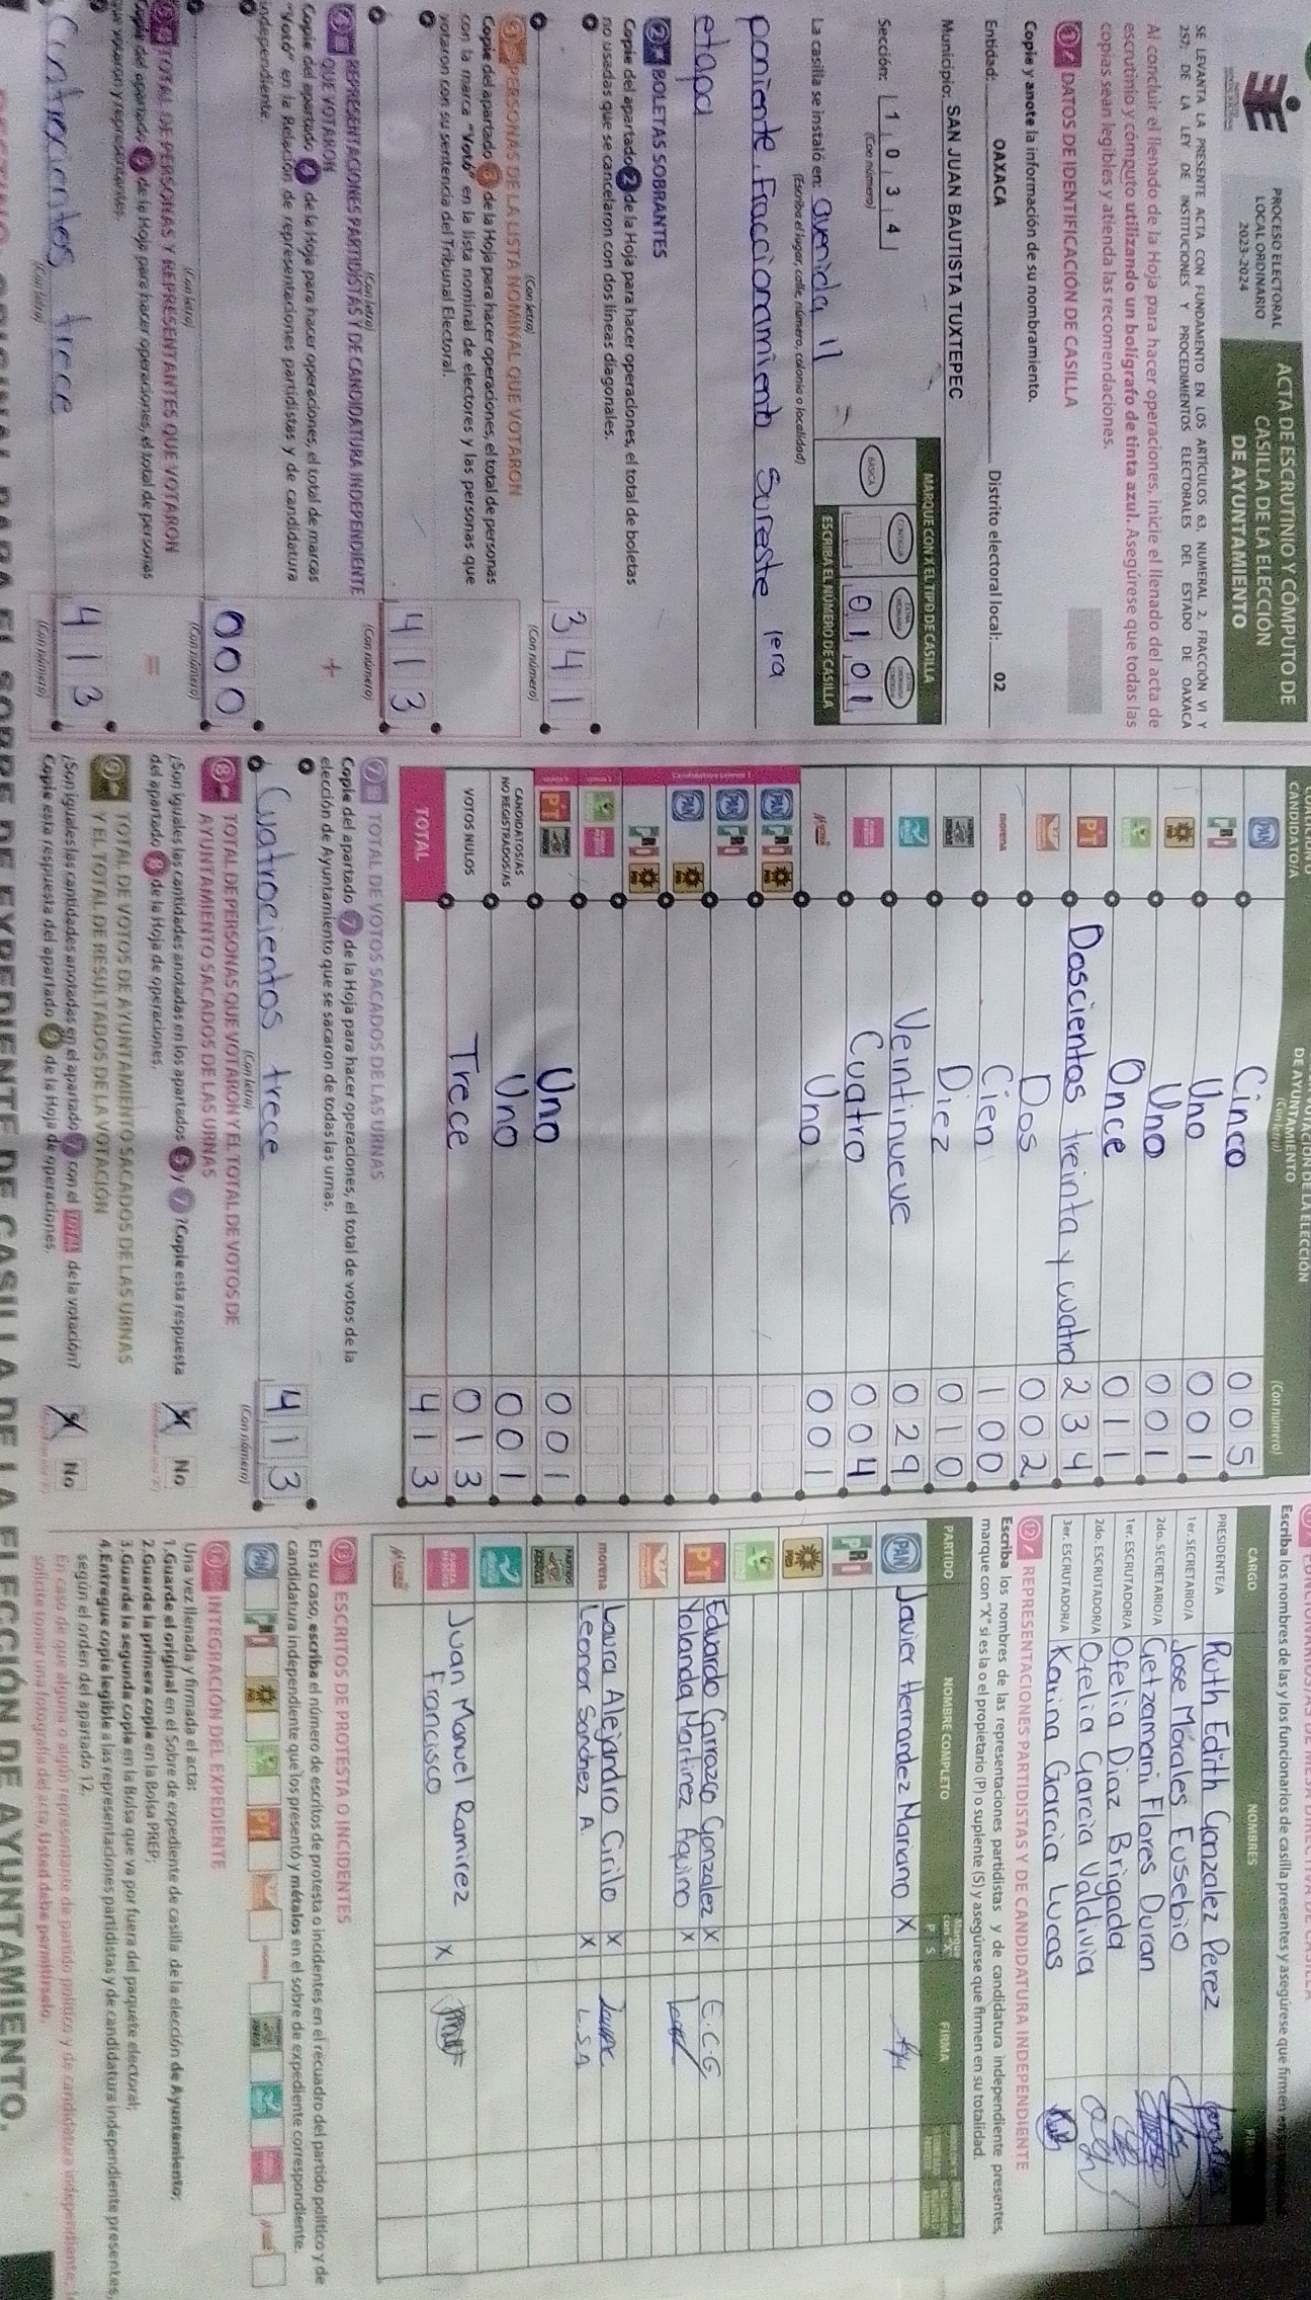 PROCESO ELECTORAL
LOCAL ORDINARIO
2023-2024
ACTA DE ESCRUTINIO Y CÓMPUTO DE
CASILLA DE LA ELECCIÓN
DE AYUNTAMIENTO
SE LEVANTA LA PRESENTE ACTA CON FUNDAMENTO EN LOS ARTÍCULOS 63, NUMERAL 2, FRACCIÓN VI Y
257, DE LA LEY DE INSTITUCIONES Y PROCEDIMIENTOS ELECTORALES DEL ESTADO DE OAXACA
Al concluir el llenado de la Hoja para hacer operaciones, inicie el llenado del acta de
escrutinio y cómputo utilizando un bolígrafo de tinta azul. Asegúrese que todas las
copias sean legibles y atienda las recomendaciones.
1 DATOS DE IDENTIFICACIÓN DE CASILLA
Copie y anote la información de su nombramiento.
Entidad: OAXACA Distrito electoral local: 02
Municipio: SAN JUAN BAUTISTA TUXTEPEC
Sección: 1 0 3 4
(Con número)
MARQUE CON X EL TIPO DE CASILLA
BÁSICA
0 1 0 1
ESCRIBA EL NÚMERO DE CASILLA
La casilla se instaló en: avenida 11
(Escriba el lugar, calle, número, colonia o localidad)
poniente, Fraccionamiento Sureste 1era
etapa
2 BOLETAS SOBRANTES
Copie del apartado 2 de la Hoja para hacer operaciones, el total de boletas
no usadas que se cancelaron con dos líneas diagonales.
(Con letra)
3 4 1
(Con número)
3 PERSONAS DE LA LISTA NOMINAL QUE VOTARON
Copie del apartado 3 de la Hoja para hacer operaciones, el total de personas
con la marca "Votó" en la lista nominal de electores y las personas que
votaron con su sentencia del Tribunal Electoral.
(Con letra)
4 1 3
(Con número)
4 REPRESENTACIONES PARTIDISTAS Y DE CANDIDATURA INDEPENDIENTE
QUE VOTARON
+
Copie del apartado 4 de la Hoja para hacer operaciones, el total de marcas
"Votó" en la Relación de representaciones partidistas y de candidatura
independiente.
(Con letra)
0 0 0
(Con número)
5 TOTAL DE PERSONAS Y REPRESENTANTES QUE VOTARON
=
Copie del apartado 5 de la Hoja para hacer operaciones, el total de personas
que votaron y representantes.
Cuatrocientos trece
(Con letra)
4 1 3
(Con número)
CANDIDATO/A
DE LA ELECCIÓN
DE AYUNTAMIENTO
(Con letra)
(Con número)
PAN Cinco 0 0 5
PRI Uno 0 0 1
PRD Uno 0 0 1
Once 0 1 1
PT Doscientos treinta y cuatro 2 3 4
Dos 0 0 2
morena Cien 1 0 0
Diez 0 1 0
Veintinueve 0 2 9
Cuatro 0 0 4
Uno 0 0 1
PAN PRI PRD
PAN PRI
PAN PRD
PRI PRD
PT Uno 0 0 1
CANDIDATOS/AS
NO REGISTRADOS/AS Uno 0 0 1
VOTOS NULOS Trece 0 1 3
TOTAL 4 1 3
7 TOTAL DE VOTOS SACADOS DE LAS URNAS
Copie del apartado 7 de la Hoja para hacer operaciones, el total de votos de la
elección de Ayuntamiento que se sacaron de todas las urnas.
Cuatrocientos trece
(Con letra)
4 1 3
(Con número)
8 TOTAL DE PERSONAS QUE VOTARON Y EL TOTAL DE VOTOS DE
AYUNTAMIENTO SACADOS DE LAS URNAS
¿Son iguales las cantidades anotadas en los apartados 5 y 7? Copie esta respuesta
del apartado 8 de la Hoja de operaciones.
X No
9 TOTAL DE VOTOS DE AYUNTAMIENTO SACADOS DE LAS URNAS
Y EL TOTAL DE RESULTADOS DE LA VOTACIÓN
¿Son iguales las cantidades anotadas en el apartado 7 con el TOTAL de la votación?
Copie esta respuesta del apartado 9 de la Hoja de operaciones.
X No
Escriba los nombres de las y los funcionarios de casilla presentes y asegúrese que firmen
CARGO NOMBRES
PRESIDENTE/A Ruth Edith Gonzalez Perez
1er. SECRETARIO/A Jose Morales Eusebio
2do. SECRETARIO/A Getzamani Flores Duran
1er. ESCRUTADOR/A Ofelia Diaz Brigada
2do. ESCRUTADOR/A Ofelia Garcia Valdivia
3er. ESCRUTADOR/A Karina Garcia Lucas
12 REPRESENTACIONES PARTIDISTAS Y DE CANDIDATURA INDEPENDIENTE
Escriba los nombres de las representaciones partidistas y de candidatura independiente presentes,
marque con "X" si es la o el propietario (P) o suplente (S) y asegúrese que firmen en su totalidad.
PARTIDO NOMBRE COMPLETO Marque con "X" P S FIRMA
PAN Javier Hernandez Mariano X
PRI
PRD
PT Eduardo Carrazco Gonzalez X E.C.G
Yolanda Martinez Aquino X
morena Laura Alejandro Cirilo X
Leonor Sanchez A. X L.S.A
Juan Manuel Ramirez
Francisco X
13 ESCRITOS DE PROTESTA O INCIDENTES
En su caso, escriba el número de escritos de protesta o incidentes en el recuadro del partido político y de
candidatura independiente que los presentó y métalos en el sobre de expediente correspondiente.
PAN PRI PRD PT
14 INTEGRACIÓN DEL EXPEDIENTE
Una vez llenada y firmada el acta:
1. Guarde el original en el Sobre de expediente de casilla de la elección de Ayuntamiento;
2. Guarde la primera copia en la Bolsa PREP;
3. Guarde la segunda copia en la Bolsa que va por fuera del paquete electoral;
4. Entregue copia legible a las representaciones partidistas y de candidatura independiente presentes,
según el orden del apartado 12.
En caso de que alguna o algún representante de partido político y de candidatura independiente,
solicite tomar una fotografía del acta, Usted debe permitírselo.
DESTINO: ORIGINAL PARA EL SOBRE DE EXPEDIENTE DE CASILLA DE LA ELECCIÓN DE AYUNTAMIENTO.